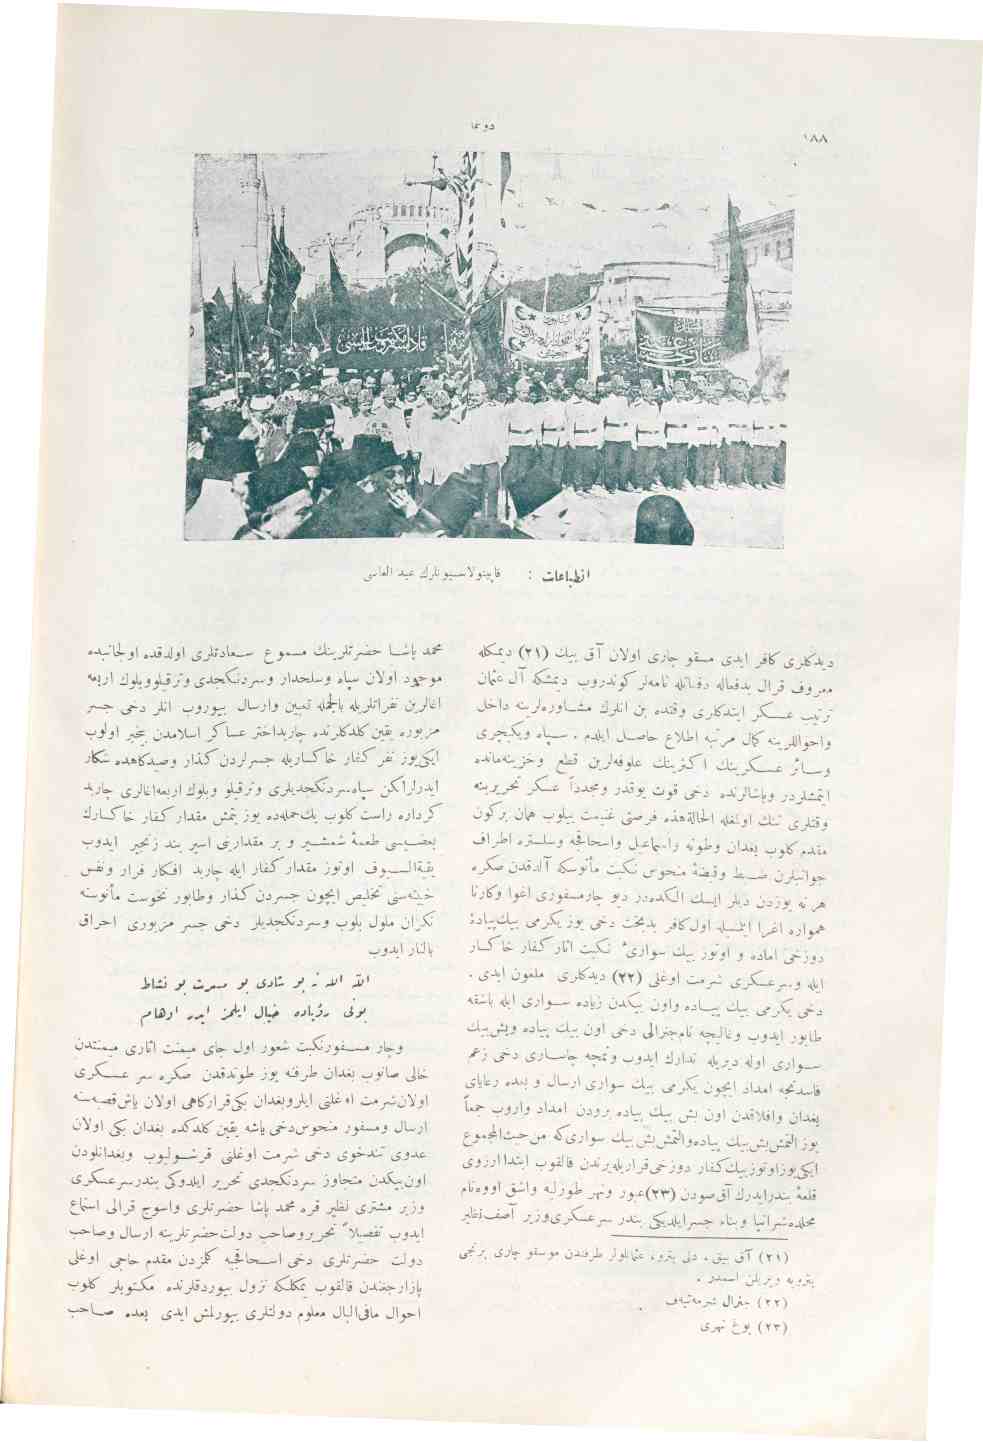 ١٨٨
دوننما
انطباعات : قاپيتولاسيونلرك عيد الغاسى
ديدكلرى كافر ايدى مسقو چارى اولان آق بيك (٢١) ديمكله
معروف قرال بدفعاله دفعاتله نامه‌لر كوندروب ديمشكه آل عثمان
ترتيب عسكر ايتدكلرى وقتده بن انلرك مشاوره‌لرينه داخل
واحواللرينه كمال مرتبه اطلاع حاصل ايلدم . سپاه ويكيچرى
وسائر عسكرينك اكثرينك علوفه‌لرين قطع وخزينه‌مانده
ايتمشلردر وپاشالرنده دخى قوت يوقدر ومجدداً عسكر تحريرينه
وقتلرى تنك اولمغله الحالةهذه فرصتى غنيمت بيلوب همان بركون
مقدم كلوب بغدان وطونه واسماعيل واسحاقجه وسلستره اطراف
جوانبلرن ضبط وقبضهٔ منحوس نكبت مأنوسكه آلدقدن صكره
هر نه يوزدن ديلر ايسك الكده‌در ديو چارمسفورى اغوا وكارنا
همواره اغرا ايتمسيله اول كافر بدبخت دخى يوز يكرمى بيك پيادهٔ
دوزخى اماده و اوتوز بيك سوارىء نكبت اثار كفار خاكسار
ايله وسرعسكرى شرمت اوغلى (٢٢) ديدكلرى ملعون ايدى .
دخى يكرمى بيك پياده واون بيكدن زياده سوارى ايله باشقه
طابور ايدوب وغاليچه نام جنرالى دخى اون بيك پياده وبش بيك
سوارى اوله ديريله تدارك ايدوب ونمچه چاسارى دخى زعم
فاسدنجه امداد ايچون يكرمى بيك سوارى ارسال و بعده رعاياى
بغدان وافلاقدن اون بش بيك پياده برودن امداد واروب جمعاً
يوز التمش بش بيك پياده والتمش بش بيك سوارى كه من حيث المجموع
ايكى يوز اوتوز بيك كفار دوزخى قرار يله يرندن قالقوب ابتدا ارزوى
قلعهٔ بندر ايدرك آق صودن (٢٣) عبور ونهر طورلـه واشق اووه نام
محلده شرانپا وبناء جسر ايلديكى بندر سرعسكرى وزير آصف نظير
(٢١) آق بيق، دلى پترو، عثمانلولر طرفندن موسقو چارى برنجى
پترويه ويريلن اسمدر .
(٢٢) جنرال شرمه‌تيه‌ف
(٢٣) بوغ نهرى
محمد پاشا حضرتلرينك مسموع سعادتلرى اولدقده اوجانبده
موجود اولان سپاه وسلحدار وسردنكجدى وترقيلو وبلوك اربعه
اغالرين نفراتلريله بالجمله تعيين وارسال بيوروب انلر دخى جسر
مزبوره يقين كلدكلرنده چاربداختر عساكر اسلامدن بيخبر اولوب
ايكى يوز نفر كفار خاكساريله جسرلردن كذار وصيدكاهده شكار
ايدرلر ايكن سپاه سردنكجديلرى وترقيلو وبلوك اربعه اغالرى چاربد
كرداره راست كلوب يك حمله‌ده يوز يتمش مقدار كفار خاكسارك
بعضيسى طعمهٔ شمشير و بر مقدارينى اسير بند زنجير ايدوب
بقيةالسيوف اوتوز مقدار كفار ايله چاربد افكار فرار ونفس
خبيثه‌سنى تخليص ايچون جسردن كذار وطابور نحوست مأنوسنه
نكران ملول بلوب وسردنكجديلر دخى جسر مزبورى احراق
بالنار ايدوب
الله الله نه بو شادى بو مسرت بو نشاط
بونى رؤياده خيال ايلمز ايدى اوهام
وچار مسفور نكبت شعور اول جاى ميمنت اثارى ميمنتدن
خالى صانوب بغدان طرفنه يوز طوتدقدن صكره سر عسكرى
اولان شرمت اوغلنى ايلرو بغدان بكى قراركاهى اولان ياش قصبه‌سنه
ارسال ومسفور منحوس دخى ياشه يقين كلدكده بغدان بكى اولان
عدوى تندخوى دخى شرمت اوغلنى قرشولوب وبغدانلودن
اون بيكدن متجاوز سردنكجدى تحرير ايلدوكى بندر سرعسكرى
وزير مشترى نظير قره محمد پاشا حضرتلرى واسوج قرالى استماع
ايدوب تفصيلاً تحرير وصاحب دولت حضرتلرينه ارسال وصاحب
دولت حضرتلرى دخى اسحاقجيه كلمزدن مقدم حاجى اوغلى
پازارجغندن قالقوب يمكلكه نزول بيوردقلرنده مكتوبلر كلوب
احوال مافى البال معلوم دولتلرى بيورلمش ايدى بعده صاحب